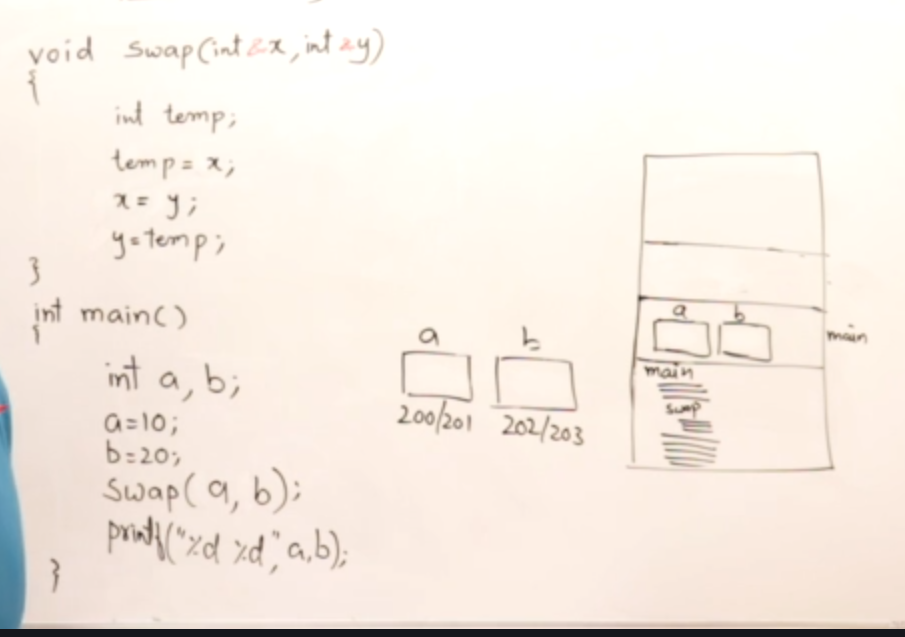 void swap(int &x, int &y)
{
int temp;
temp = x;
x = y;
y = temp;
}
int main()
{
int a, b;
a=10;
b=20;
swap(a, b);
printf("%d %d", a,b);
}
a b
200/201 202/203
a b
main
main
swap